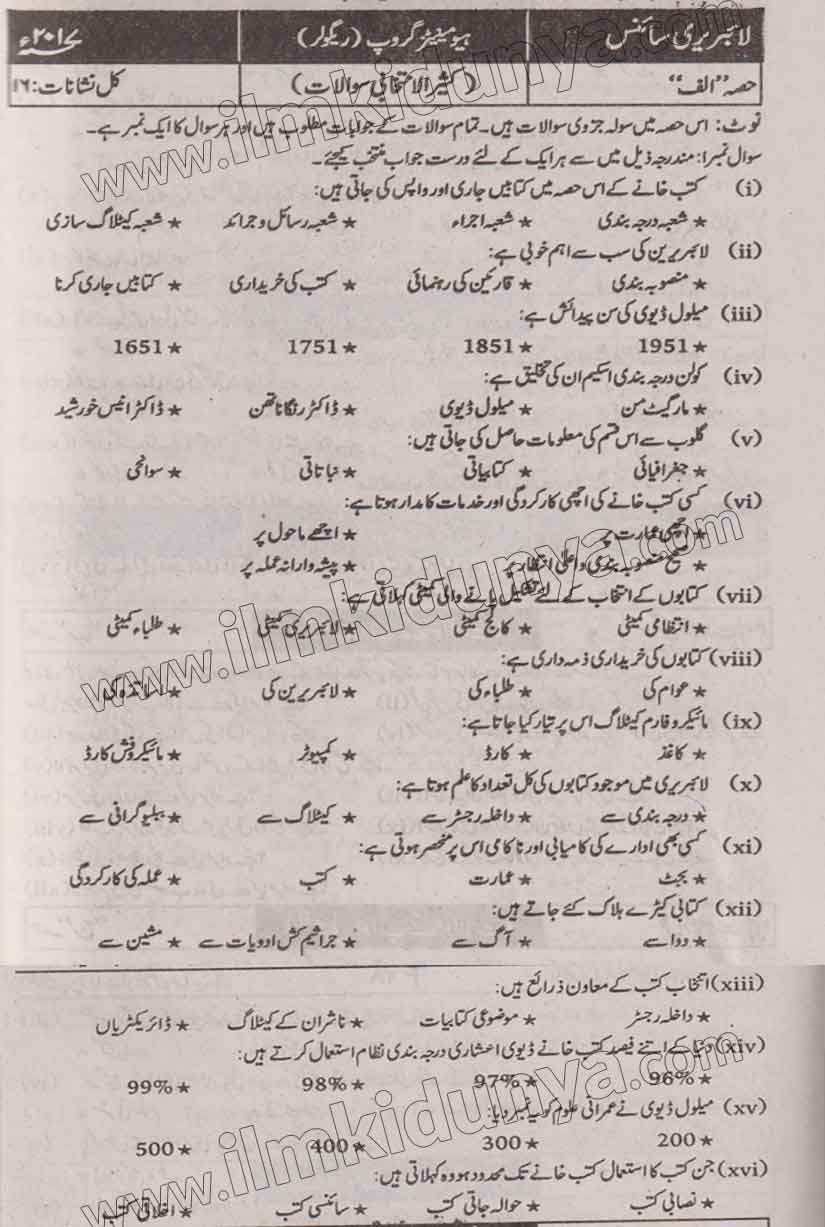 لائبریری سائنس ہیومینیٹیز گروپ (ریگولر) ۲۰۱۷ء
حصہ "الف" (کثیر الانتخابی سوالات) کل نشانات: ۱۶
نوٹ: اس حصہ میں سولہ جزوی سوالات ہیں۔ تمام سوالات کے جوابات مطلوب ہیں اور ہر سوال کا ایک نمبر ہے۔
سوال نمبر ۱: مندرجہ ذیل میں سے ہر ایک کے لئے درست جواب منتخب کیجئے۔
(i) کتب خانے کے اس حصہ میں کتابیں جاری اور واپس کی جاتی ہیں:
★ شعبہ درجہ بندی ★ شعبہ اجراء ★ شعبہ رسائل و جرائد ★ شعبہ کیٹلاگ سازی
(ii) لائبریرین کی سب سے اہم خوبی ہے:
★ منصوبہ بندی ★ قارئین کی رہنمائی ★ کتب کی خریداری ★ کتابیں جاری کرنا
(iii) میلول ڈیوی کی سن پیدائش ہے:
★ 1951 ★ 1851 ★ 1751 ★ 1651
(iv) کولن درجہ بندی اسکیم ان کی تخلیق ہے:
★ مارگیٹ من ★ میلول ڈیوی ★ ڈاکٹر رنگاناتھن ★ ڈاکٹر انیس خورشید
(v) گلوب سے اس قسم کی معلومات حاصل کی جاتی ہیں:
★ جغرافیائی ★ کتابیاتی ★ نباتاتی ★ سوانحی
(vi) کسی کتب خانے کی اچھی کارکردگی اور خدمات کا مدار ہوتا ہے:
★ اچھی عمارت پر ★ اچھے ماحول پر
★ صحیح منصوبہ بندی و اعلیٰ انتظار پر ★ پیشہ وارانہ عملہ پر
(vii) کتابوں کے انتخاب کے لئے تشکیل پانے والی کمیٹی کہلاتی ہے:
★ انتظامی کمیٹی ★ کالج کمیٹی ★ لائبریری کمیٹی ★ طلباء کمیٹی
(viii) کتابوں کی خریداری ذمہ داری ہے:
★ عوام کی ★ طلباء کی ★ لائبریرین کی ★ اساتذہ کی
(ix) مائیکروفارم کیٹلاگ اس پر تیار کیا جاتا ہے:
★ کاغذ ★ کارڈ ★ کمپیوٹر ★ مائیکروفش کارڈ
(x) لائبریری میں موجود کتابوں کی کل تعداد کا علم ہوتا ہے:
★ درجہ بندی سے ★ داخلہ رجسٹر سے ★ کیٹلاگ سے ★ ببلیوگرافی سے
(xi) کسی بھی ادارے کی کامیابی اور ناکامی اس پر منحصر ہوتی ہے:
★ بجٹ ★ عمارت ★ کتب ★ عملہ کی کارکردگی
(xii) کتابی کیڑے ہلاک کئے جاتے ہیں:
★ دوا سے ★ آگ سے ★ جراثیم کش ادویات سے ★ مشین سے
(xiii) انتخاب کتب کے معاون ذرائع ہیں:
★ داخلہ رجسٹر ★ موضوعی کتابیات ★ ناشران کے کیٹلاگ ★ ڈائریکٹریاں
(xiv) دنیا کے اتنے فیصد کتب خانے ڈیوی اعشاری درجہ بندی نظام استعمال کرتے ہیں:
★ 96% ★ 97% ★ 98% ★ 99%
(xv) میلول ڈیوی نے عمرانی علوم کو یہ نمبر دیا:
★ 200 ★ 300 ★ 400 ★ 500
(xvi) جن کتب کا استعمال کتب خانے تک محدود ہو وہ کہلاتی ہیں:
★ نصابی کتب ★ حوالہ جاتی کتب ★ سائنسی کتب ★ اخلاقی کتب
www.ilmkidunya.com
www.ilmkidunya.com
www.ilmkidunya.com